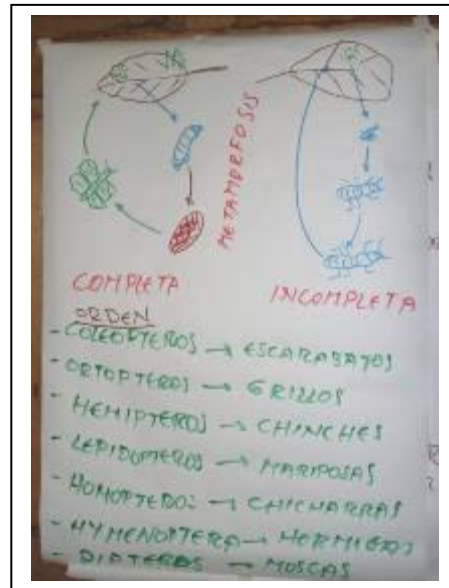 METAMORFOSIS
COMPLETA
INCOMPLETA
ORDEN
- COLEOPTEROS → ESCARABAJOS
- ORTOPTEROS → GRILLOS
- HEMIPTEROS → CHINCHES
- LEPIDOPTEROS → MARIPOSAS
- HOMOPTEROS → CHICHARRAS
- HYMENOPTERA → HORMIGAS
- DIPTEROS → MOSCAS